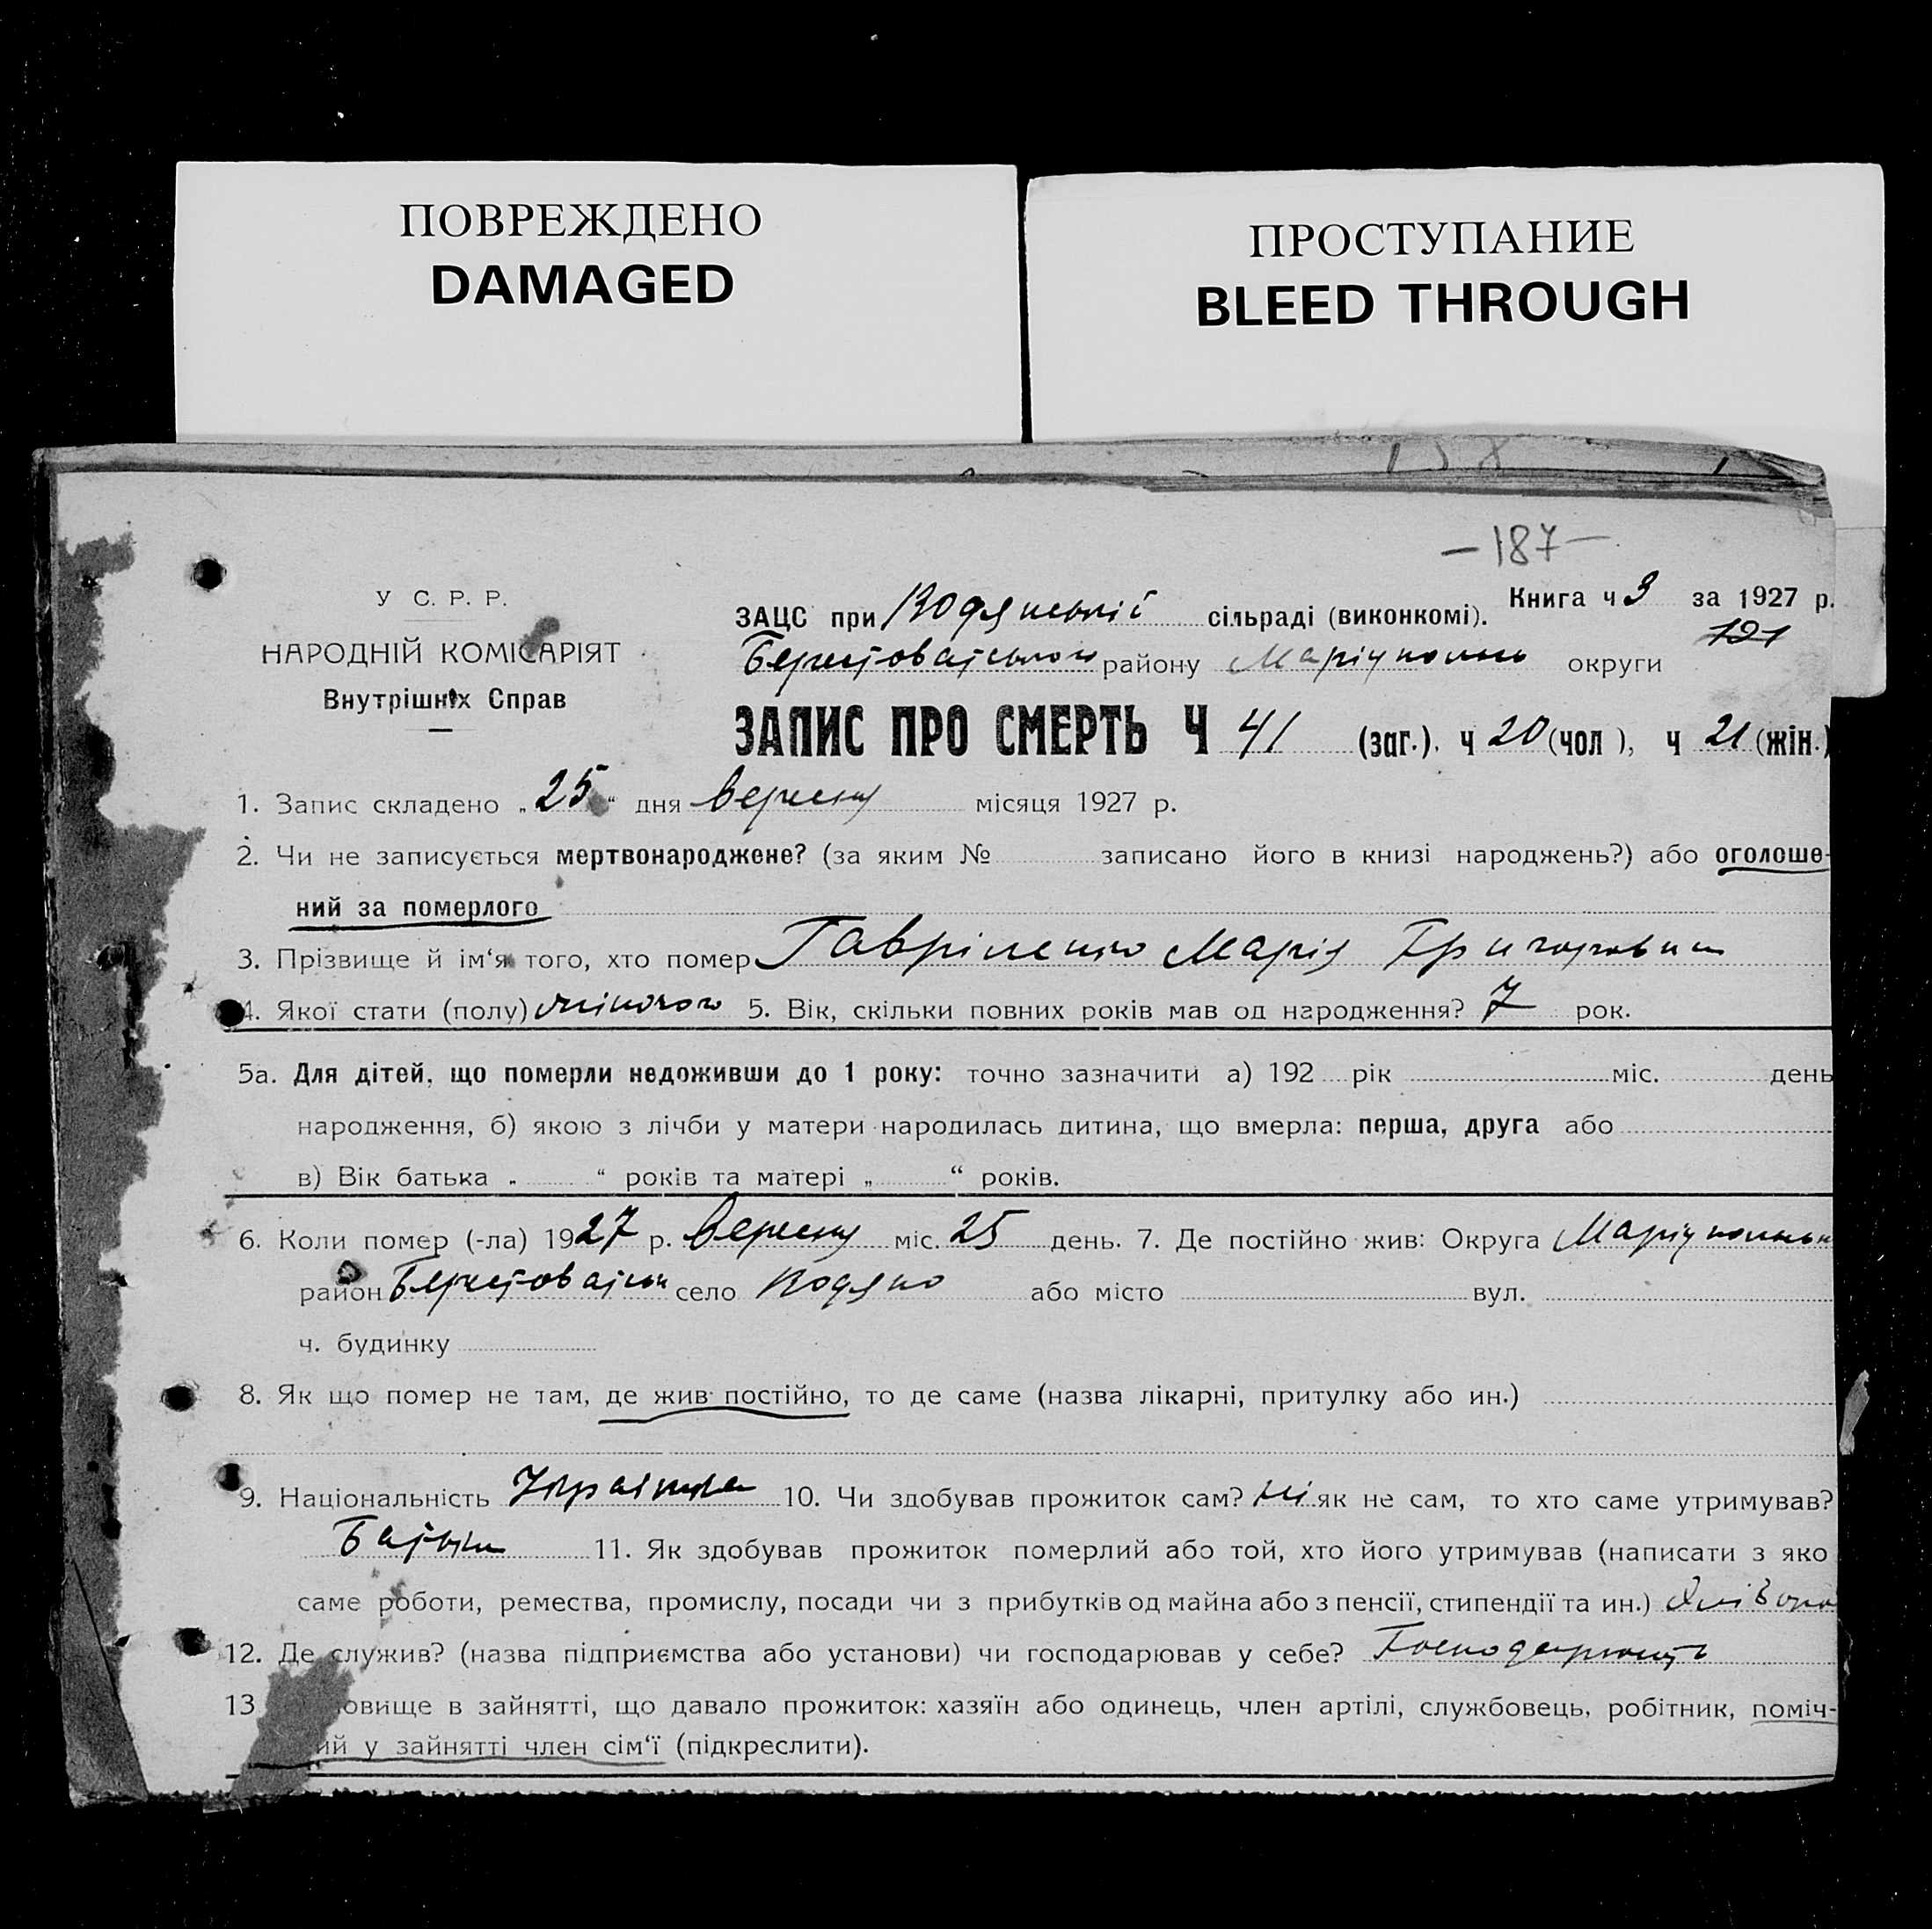 ПОВРЕЖДЕНО
DAMAGED
ПРОСТУПАНИЕ
BLEED THROUGH
—187—
У С. Р. Р.
НАРОДНІЙ КОМІСАРІЯТ
Внутрішніх Справ
Книга ч 3 за 1927 р.
121
ЗАЦС при Водянській сільраді (виконкомі).
Берестоватського району Маріупольсь округи
ЗАПИС ПРО СМЕРТЬ Ч 41 (заг.), ч 20 (чол), ч 21 (жін.)
1. Запис складено „25“ дня вересня місяця 1927 р.
2. Чи не записується мертвонароджене? (за яким № записано його в книзі народжень?) або оголоше-
ний за померлого
3. Прізвище й ім‘я того, хто помер Гавріленко Марія
4. Якої стати (полу) жіночого 5. Вік, скільки повних років мав од народження? 7 рок.
5а. Для дітей, що померли недоживши до 1 року: точно зазначити а) 192 рік міс. день
народження, б) якою з лічби у матери народилась дитина, що вмерла: перша, друга або
в) Вік батька „ “ років та матері „ “ років.
6. Коли помер (-ла) 1927 р. вересня міс. 25 день. 7. Де постійно жив: Округа Маріупольськ
район Берестоватськ село Водяно або місто вул.
ч. будинку
8. Як що помер не там, де жив постійно, то де саме (назва лікарні, притулку або ин.)
9. Національність Українка 10. Чи здобував прожиток сам? ні як не сам, то хто саме утримував?
Батьки 11. Як здобував прожиток померлий або той, хто його утримував (написати з яко
саме роботи, ремества, промислу, посади чи з прибутків од майна або з пенсії, стипендії та ин.)
12. Де служив? (назва підприємства або установи) чи господарював у себе?
13 овище в зайнятті, що давало прожиток: хазяїн або одинець, член артілі, службовець, робітник, поміч-
ий у зайнятті член сім‘ї (підкреслити).